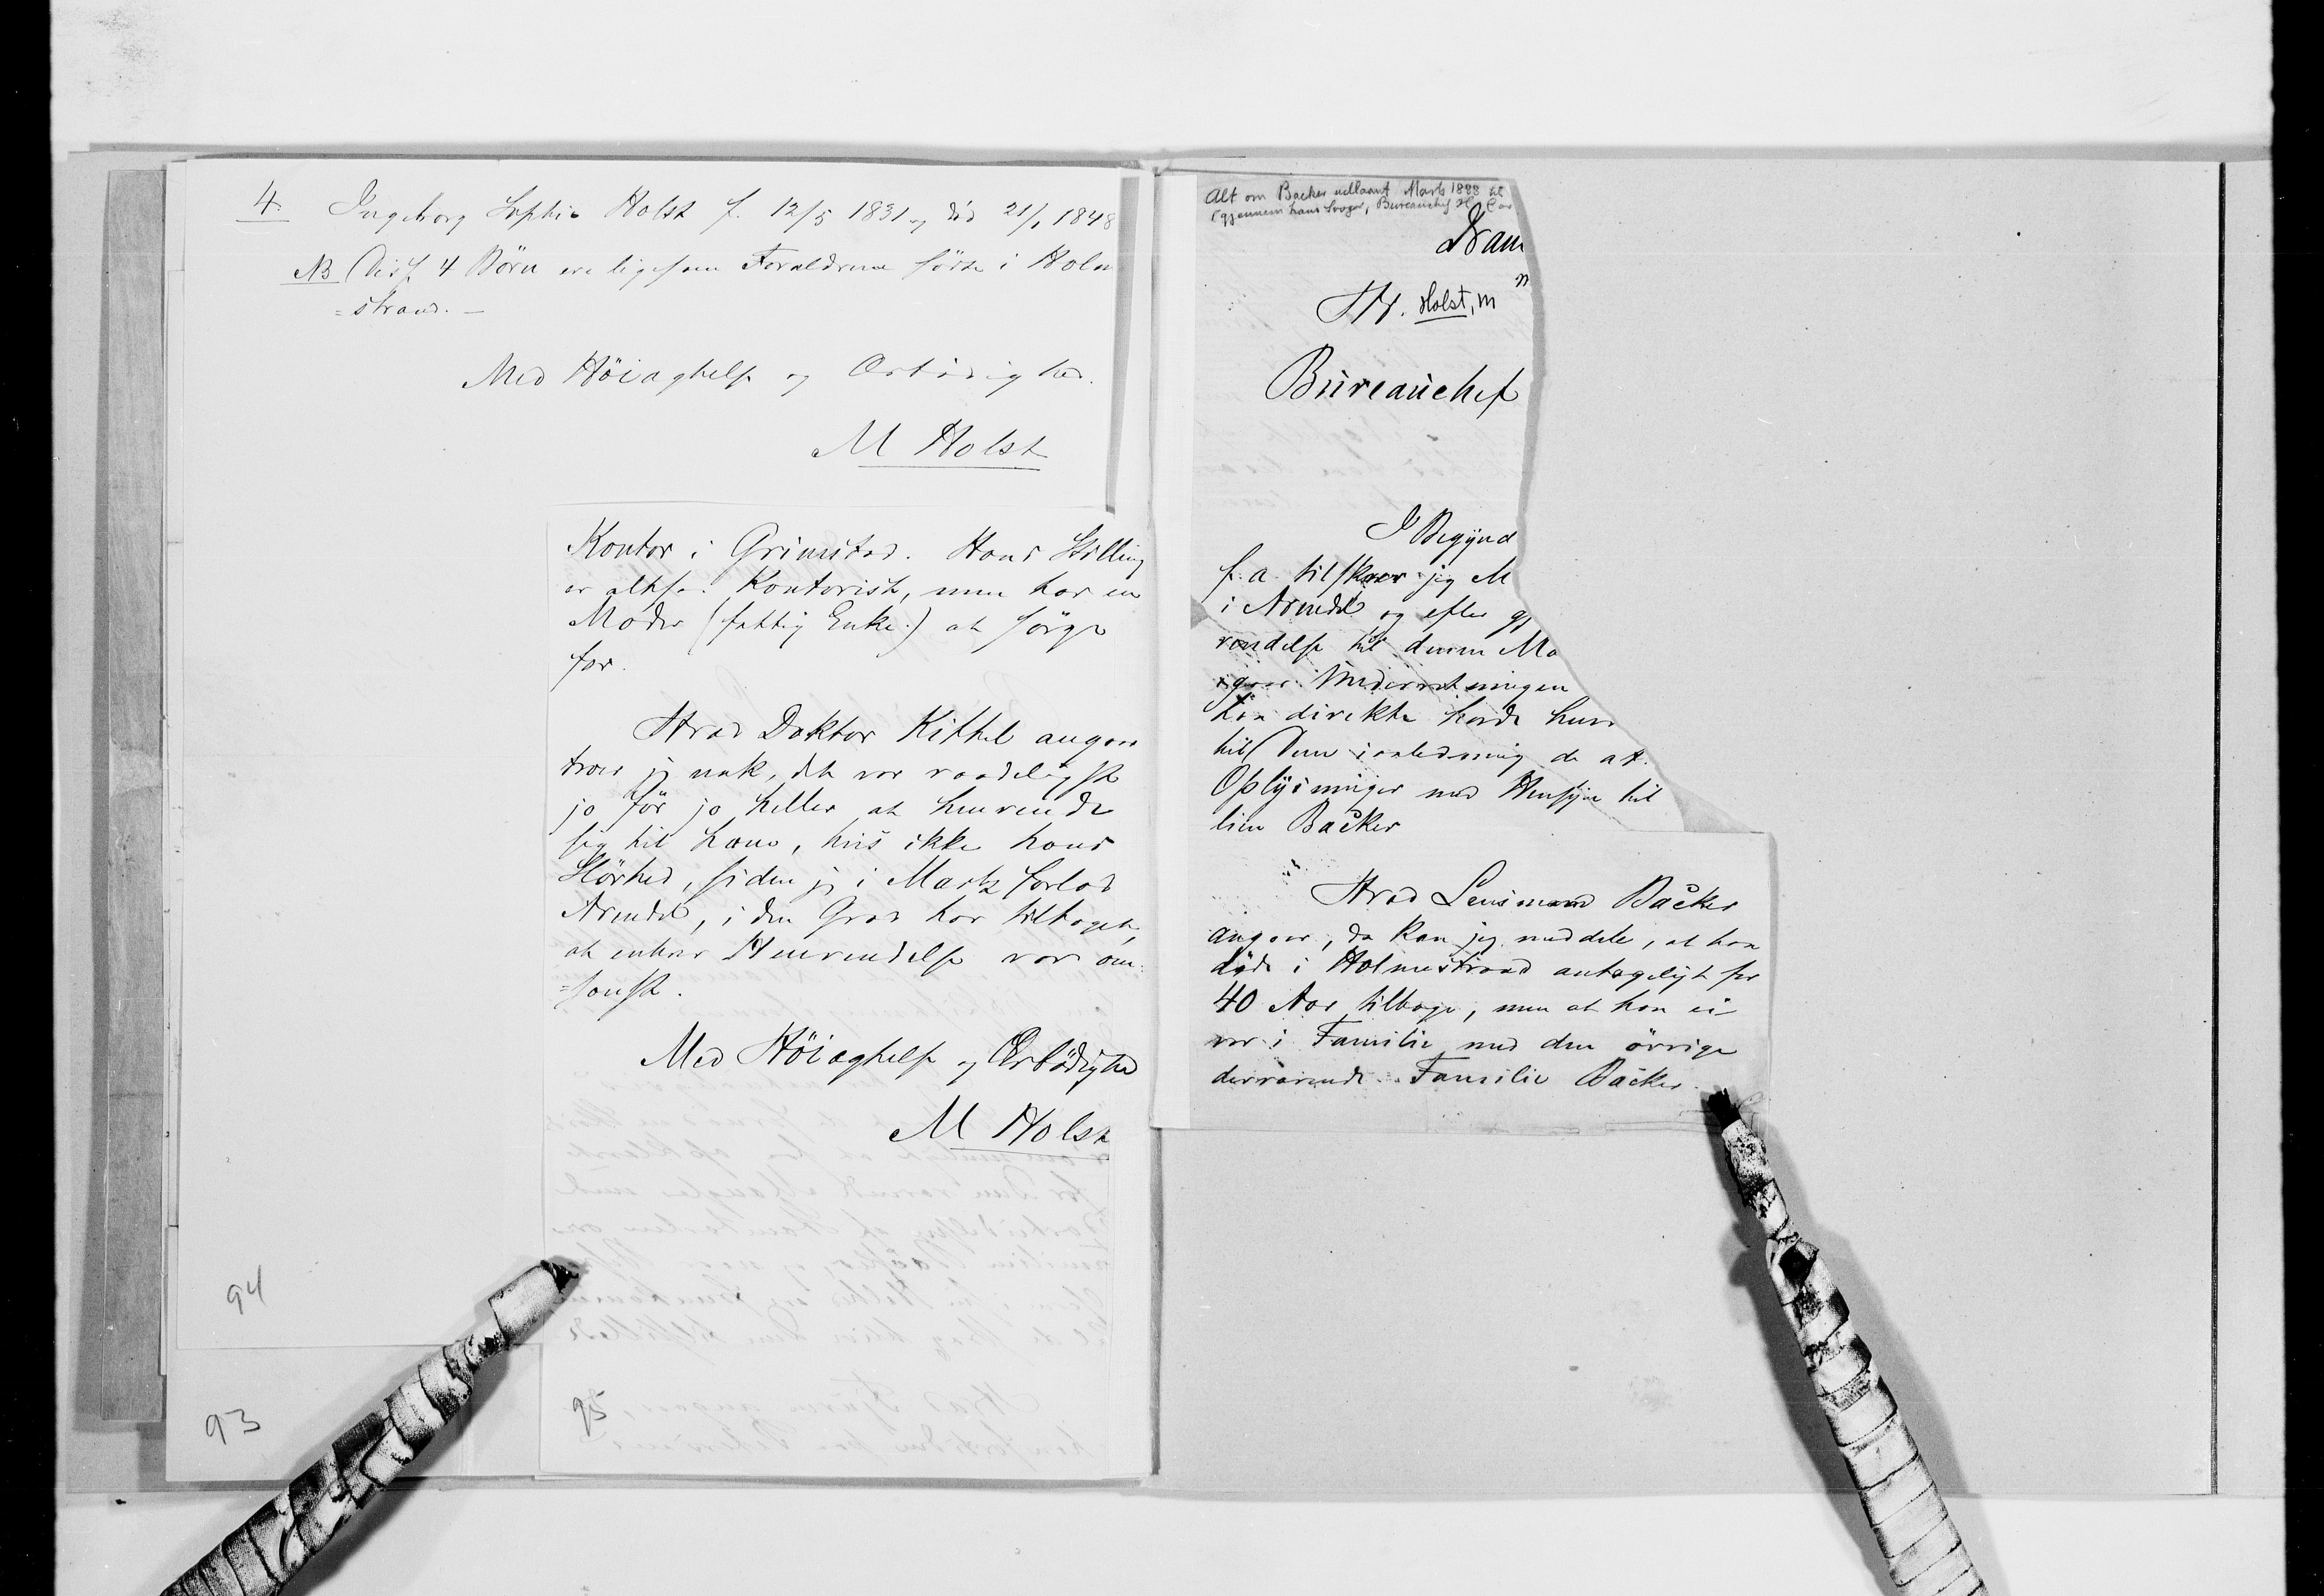 4. Ingeborg Sophie Holst f. 12/5 1831 og död 21/1 1848
NB Disse 4 Börn ere ligesom Forældrene födte i Holm
=strand. —
Med Höiagtelse og Ærbödighed.
M Holst
Kontor i Grimstad. Hans Stilling
er altsaa: Kontorist, men har en
Moder (fattig Enke.) at sörge
for.
Hvad Doktor Kittel angaar
troer jeg nok, det var raadeligst
jo för jo heller at henvende
sig til ham, hvis ikke hans
Slövhed, siden jeg i Marts forlod
Arendal, i den Grad har tiltaget,
at enhver Henvendelse var om=
=sonst.
Med Höiagtelse og Ærbödighed
M Holst
94
93
95
Alt om Backer udlaant Marts 1888 til
(gjennem hans Svoger, Bureauchef H.
Dram
n
Hr. Holst, M
Bureauchef
I Begynd
f. a. tilskrev jeg M
i Arendal og efter gj
vendelse til denne Ma
Underretningen
han direkte havde hen
til Dem i anledning de af
Oplysninger med Hensyn til
lien Backer
Hvad Lensmand Backer
angaar, da kan jeg meddele, at han
döde i Holmestrand antageligt for
40 Aar tilbage, men at han ei
var i Familie med den övrige
derværende Familie Backer.